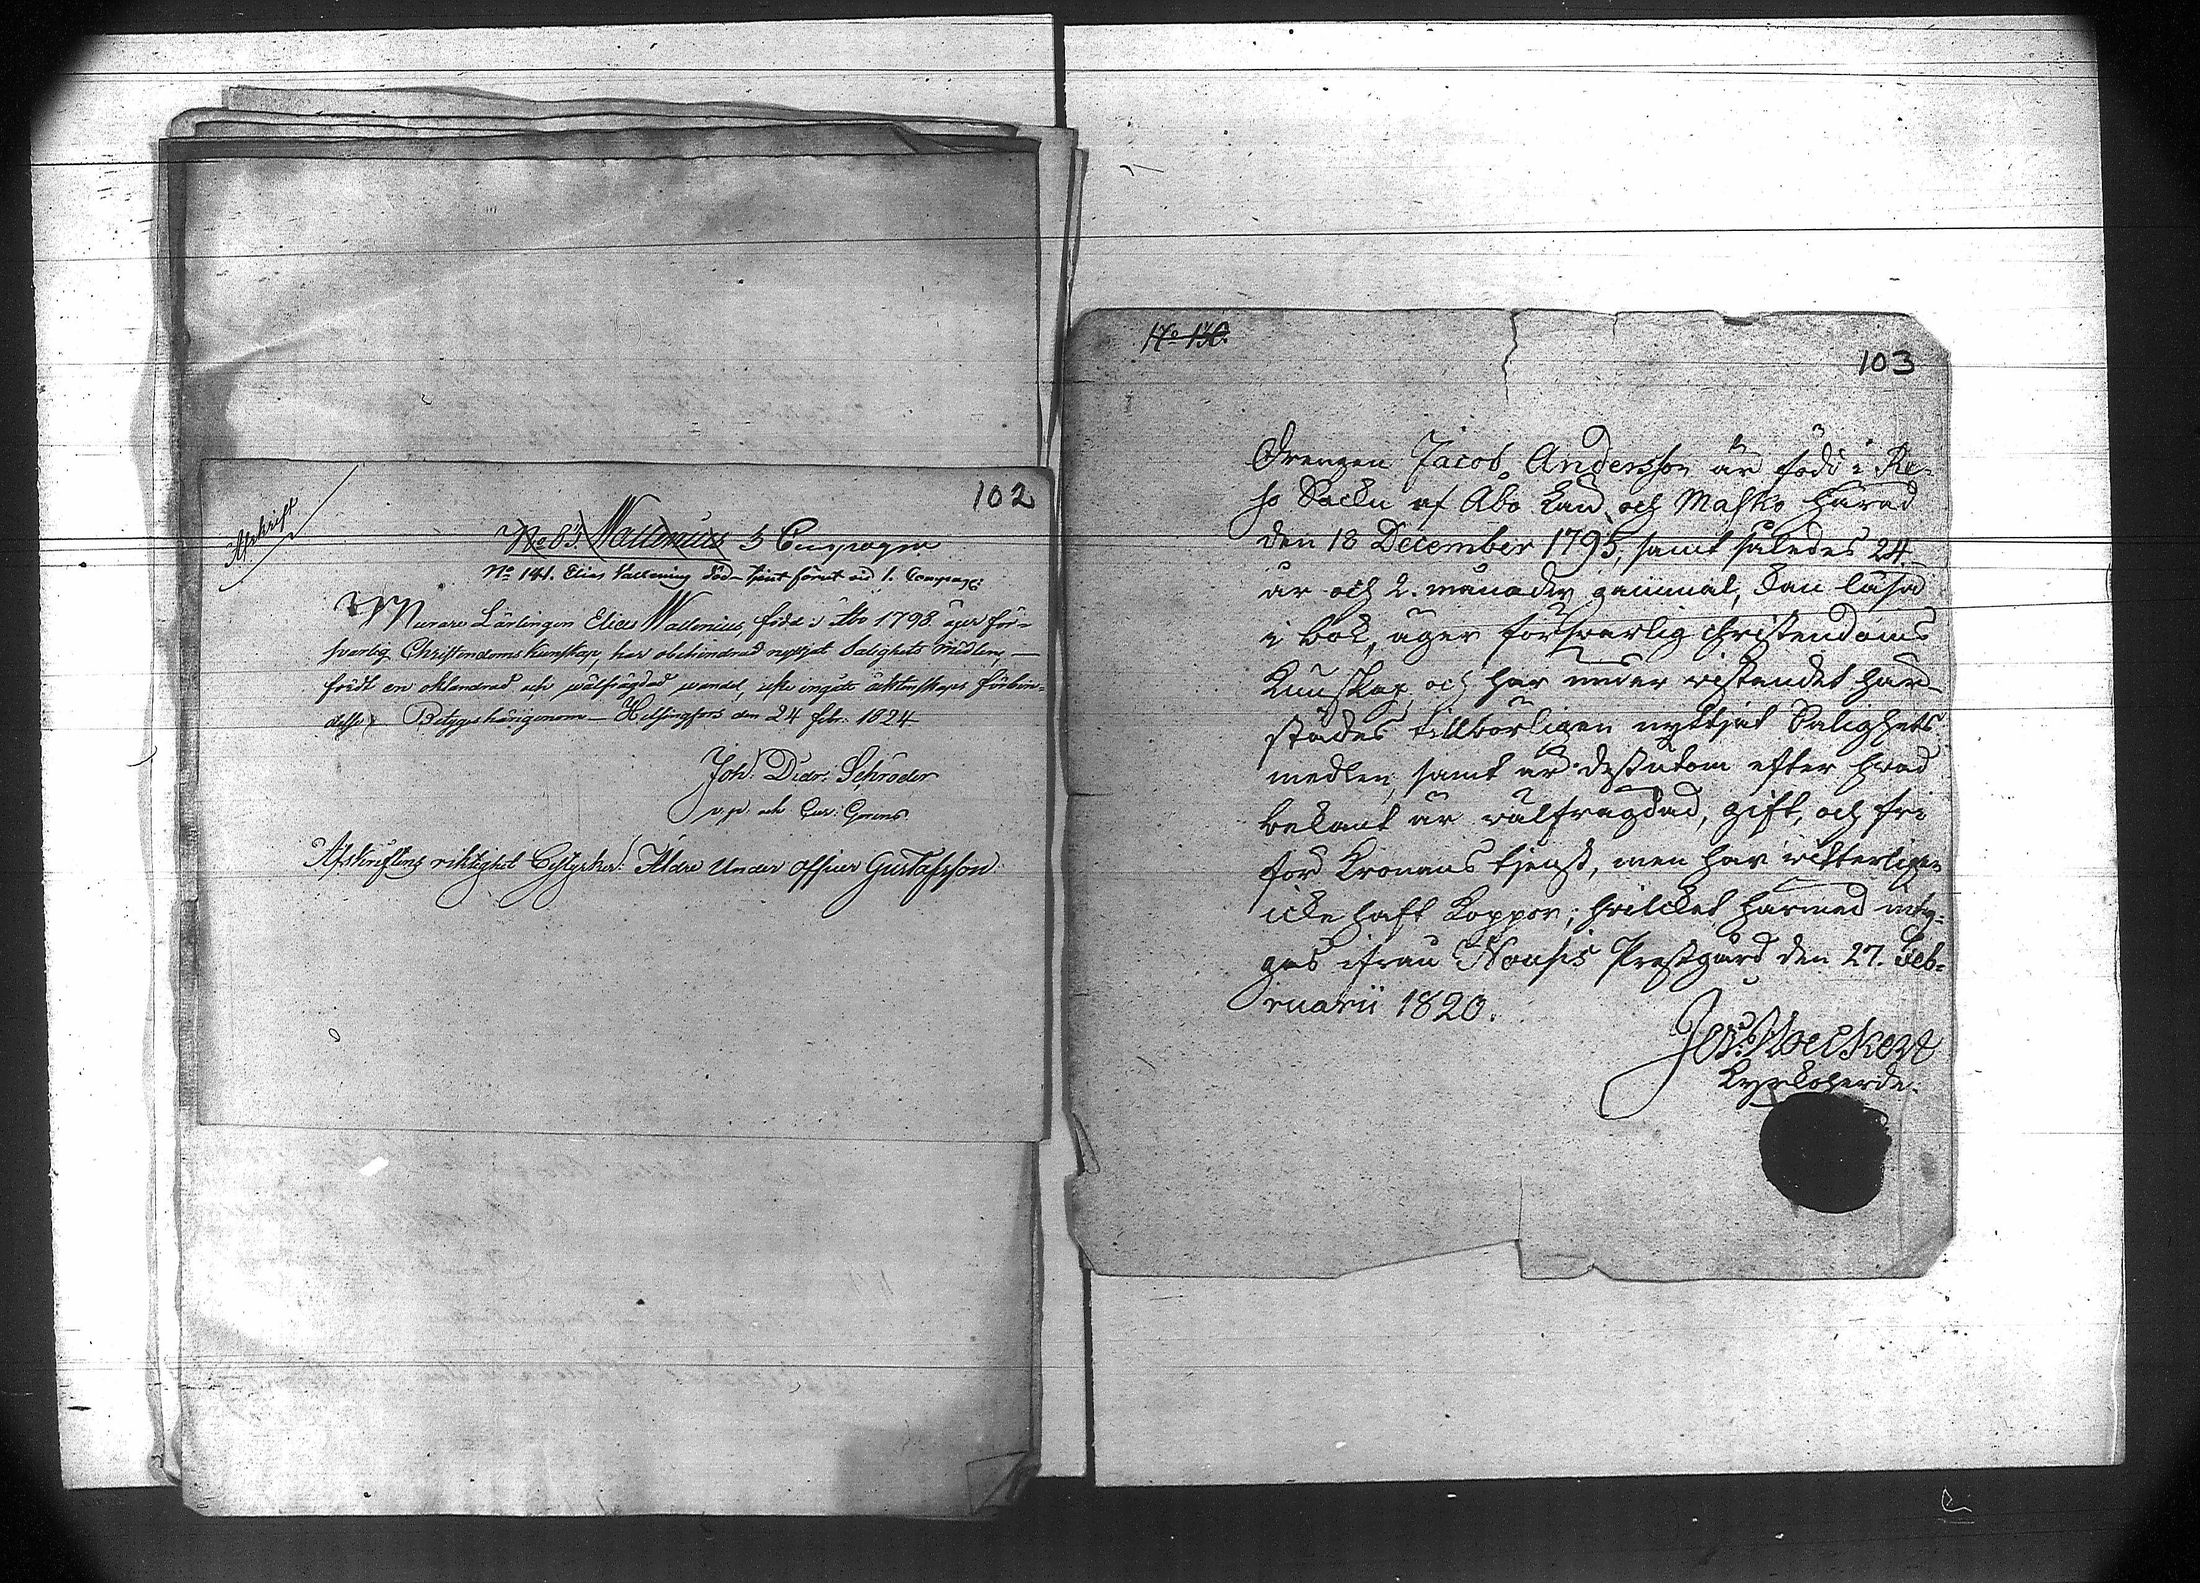 102
Afskrift
No 83. Wallenius 5 Compagn
No 141. Elias Vallenius död - tjent förut vid 1. Compag:
Murare Lärlingen Elias Wallenius, född i Åbo 1798. äger för-
svarlig Christendoms kunskap, har obehindrad nyttjat Salighets Medlen, —
fördt en oklandrad och wälfrägdad wandel, icke ingått äktenskaps förbin-
delse; Betygas härigenom — Helsingfors den 24 febr. 1824
Joh: Didr: Schröder
v. p. och Cur: Gerens
Afskriftens riktighet Äldre Under Officer Gustafsson.
103
No
Drengen Jacob Andersson är född i Re-
so Sockn af Åbo Län och Masko Härad
den 18 December 1795, samt således 24
år och 2. månader gammal, kan läsa
i bok, äger försvarlig christendoms
kunskap, och har under vistandet här-
städes tillbörligen nyttjat Salighets
medlen, samt är dessutom efter hvad
bekant är välfrägdad, gift, och fri
för Kronans tjenst, men har vitterligen
icke haft koppor; hvilcket härmed intÿ-
gas ifrån Nousis Prestgård den 27. Feb-
ruarii 1820.
Kyrkoherde.